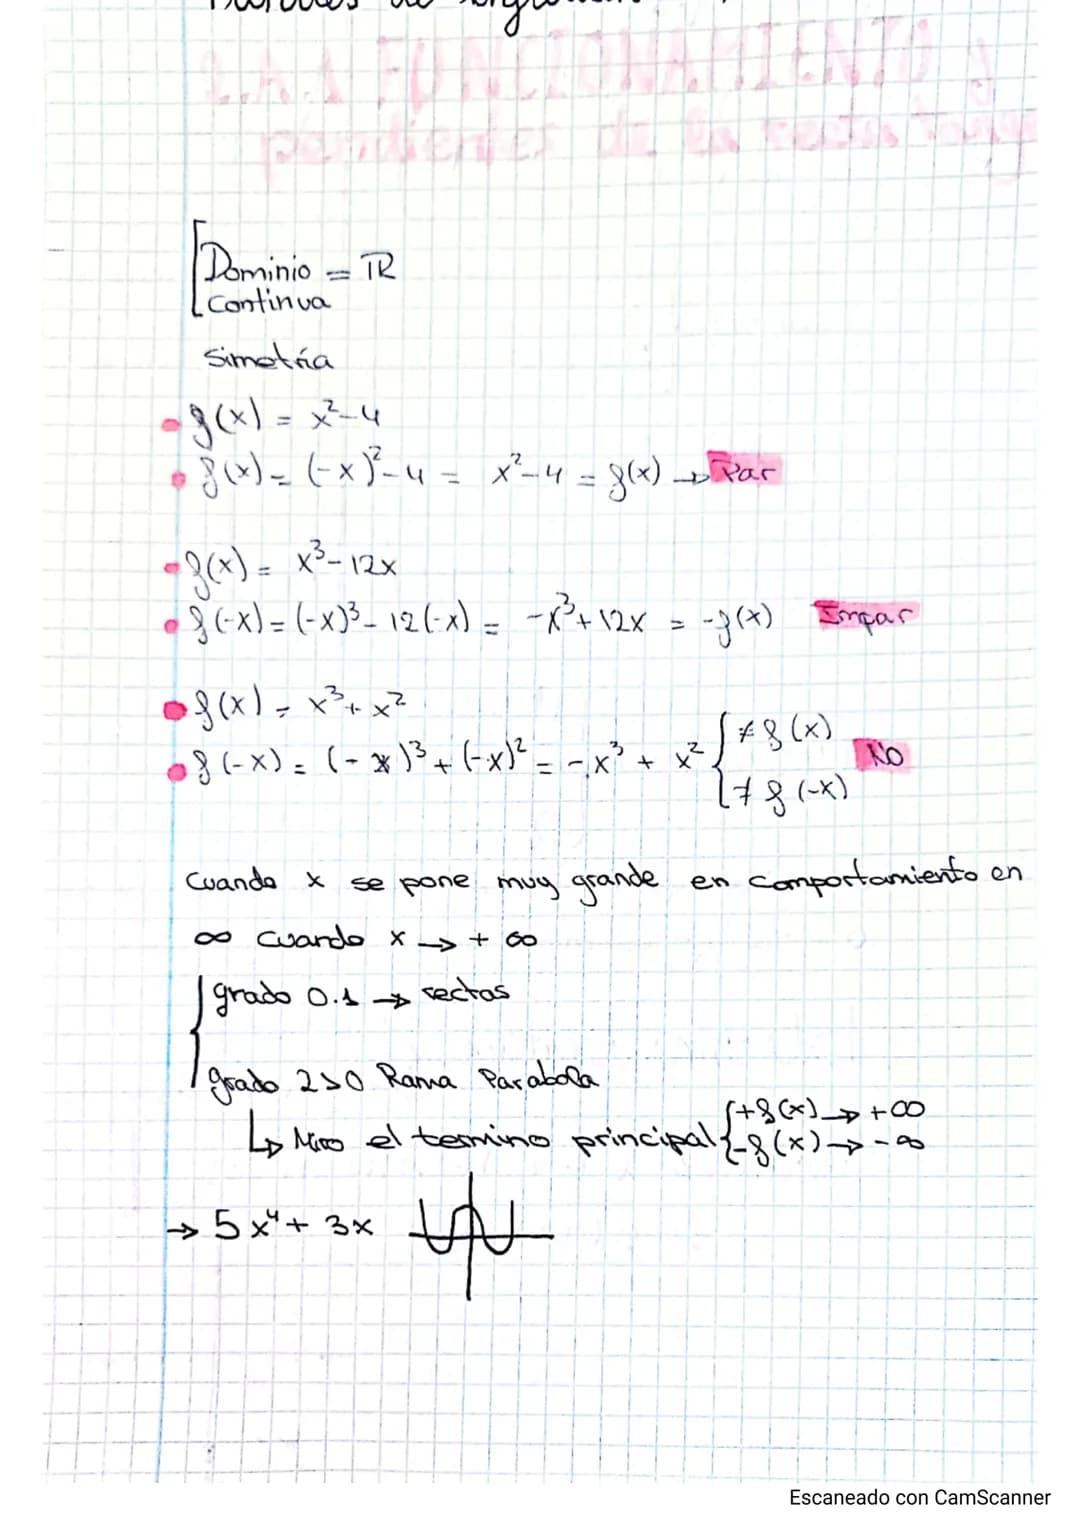 Dominio = ℝ
Continua
Simetría
f(x) = x²-4
f(x) = (-x)²-4 = x²-4 = f(x) → Par
f(x) = x³-12x
f(-x) = (-x)³- 12(-x) = -x³+12x = -f(x) Impar
f(x) = x³+x²
f(-x) = (-x)³+(-x)² = -x³ + x² { ≠ f(x) No
≠ f(-x)
Cuando x se pone muy grande en comportamiento en
∞ cuando x → + ∞
grado 0.1 → rectas
grado 2>0 Rama Parabola
↳ Miro el termino principal { +f(x) → +∞
-f(x) → -∞
→ 5x⁴+ 3x
Escaneado con CamScanner